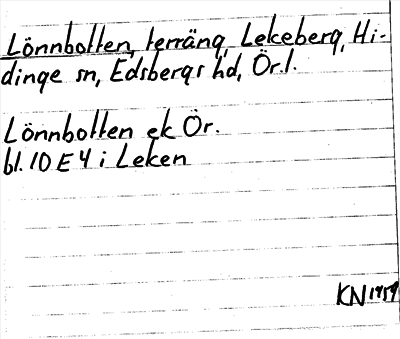 Lönnbotten, terräng, Lekeberg, Hi-
dinge sn, Edsbergs hd, Ör.l.
Lönnbotten ek Ör.
bl. 10 E 4 i Leken
KN 1959